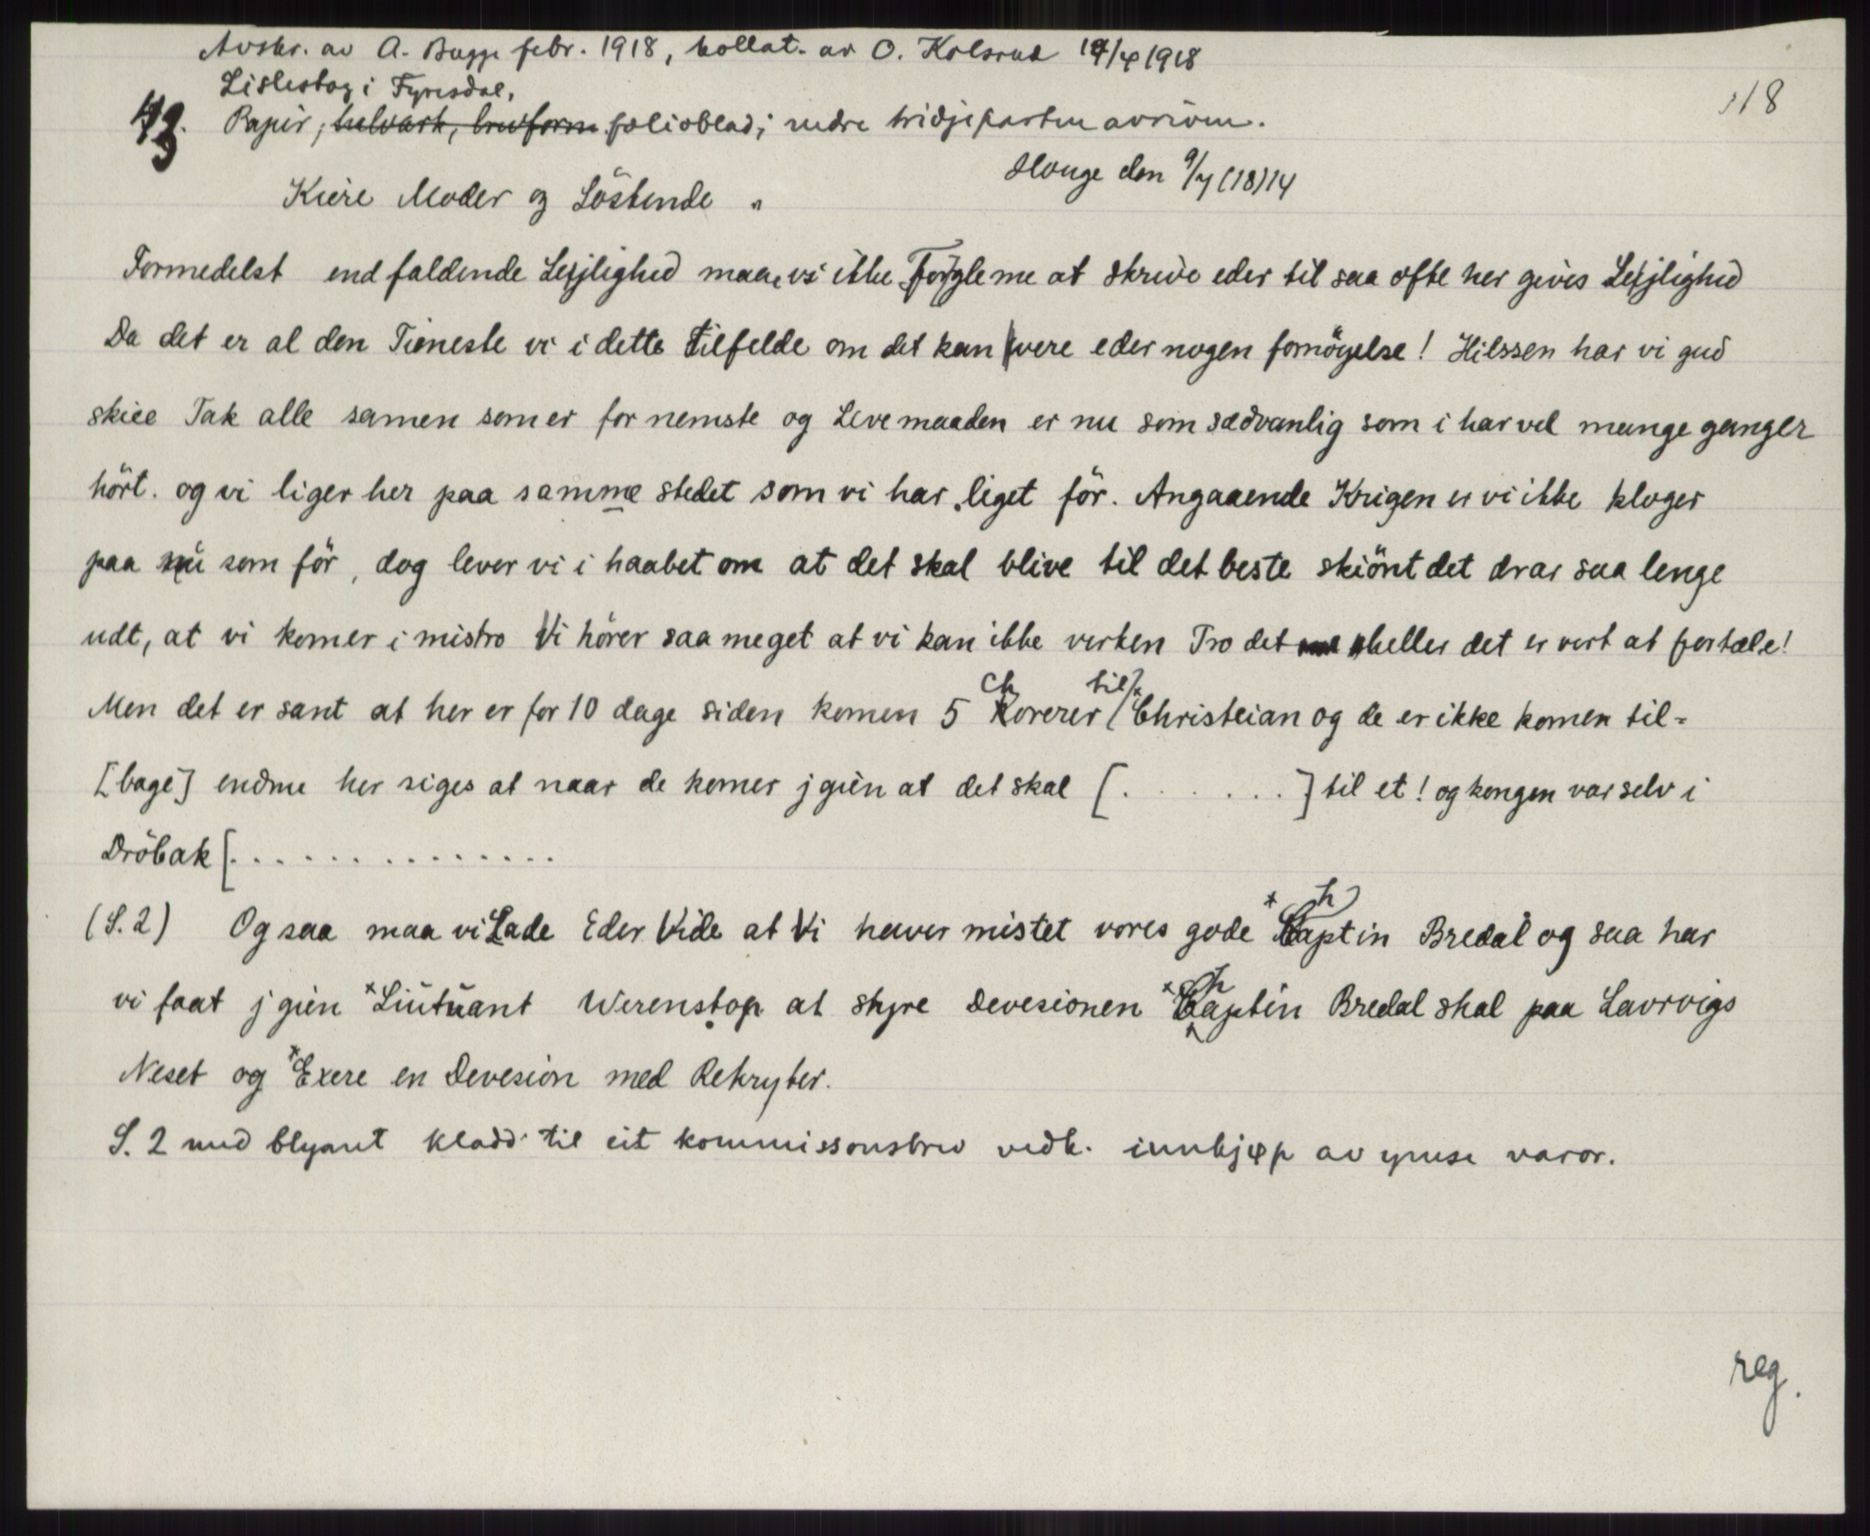 Avskr. av A. Bugge febr. 1918, kollat. av O. Kolsrud 17/4 1918
Lislestog i Fyresdal.
118
43. Papir, halvark, brevform folioblad; nedre tridjeparten avriven.
Houge den 9/7 (18)14
Kiere Moder og Söskende "
Formedelst end faldende Lejlighed maae vi ikke Forgleme at skrive eder til saa ofte her gives Lejlighed
Da det er al den Tieneste vi i dette Tilfelde om det kan vere eder nogen fornöyelse! Hilssen har vi gud
skiee Tak alle samen som er for nemste og Leve maaden er nu som sædvanlig som i har vel mange ganger
hört. og vi liger her paa samme stedet som vi har liget för. Angaaende Krigen er vi ikke kloger
paa nú som för, dog lever vi i haabet om at det skal blive til det beste skiönt det drar saa lenge
udt, at vi komer i mistro Vi hörer saa meget at vi kan ikke verken Tro det heller det er vert at fortæle!
Men det er sant at her er for 10 dage siden komen 5 Korerer til Christeian og de er ikke komen til=
[bage] endnu her siges at naar de komer j gien at det skal [. . . . . .] til et! og kongen var selv i
Dröbak [. . . . . . . . . . . . . .
(S. 2) Og saa maa vi Lade Eder Vide at Vi haver mistet vores gode *Captin Bredal og saa har
vi faat j gien *Liutuant Werenstop at styre Devesionen *Captin Bredal skal paa Lavrvigs
Neset og *Exere en Devesion med Rekryter.
S. 2 med blyant kladd til eit kommissonsbrev vedk. innkjøp av ymse varor.
reg.